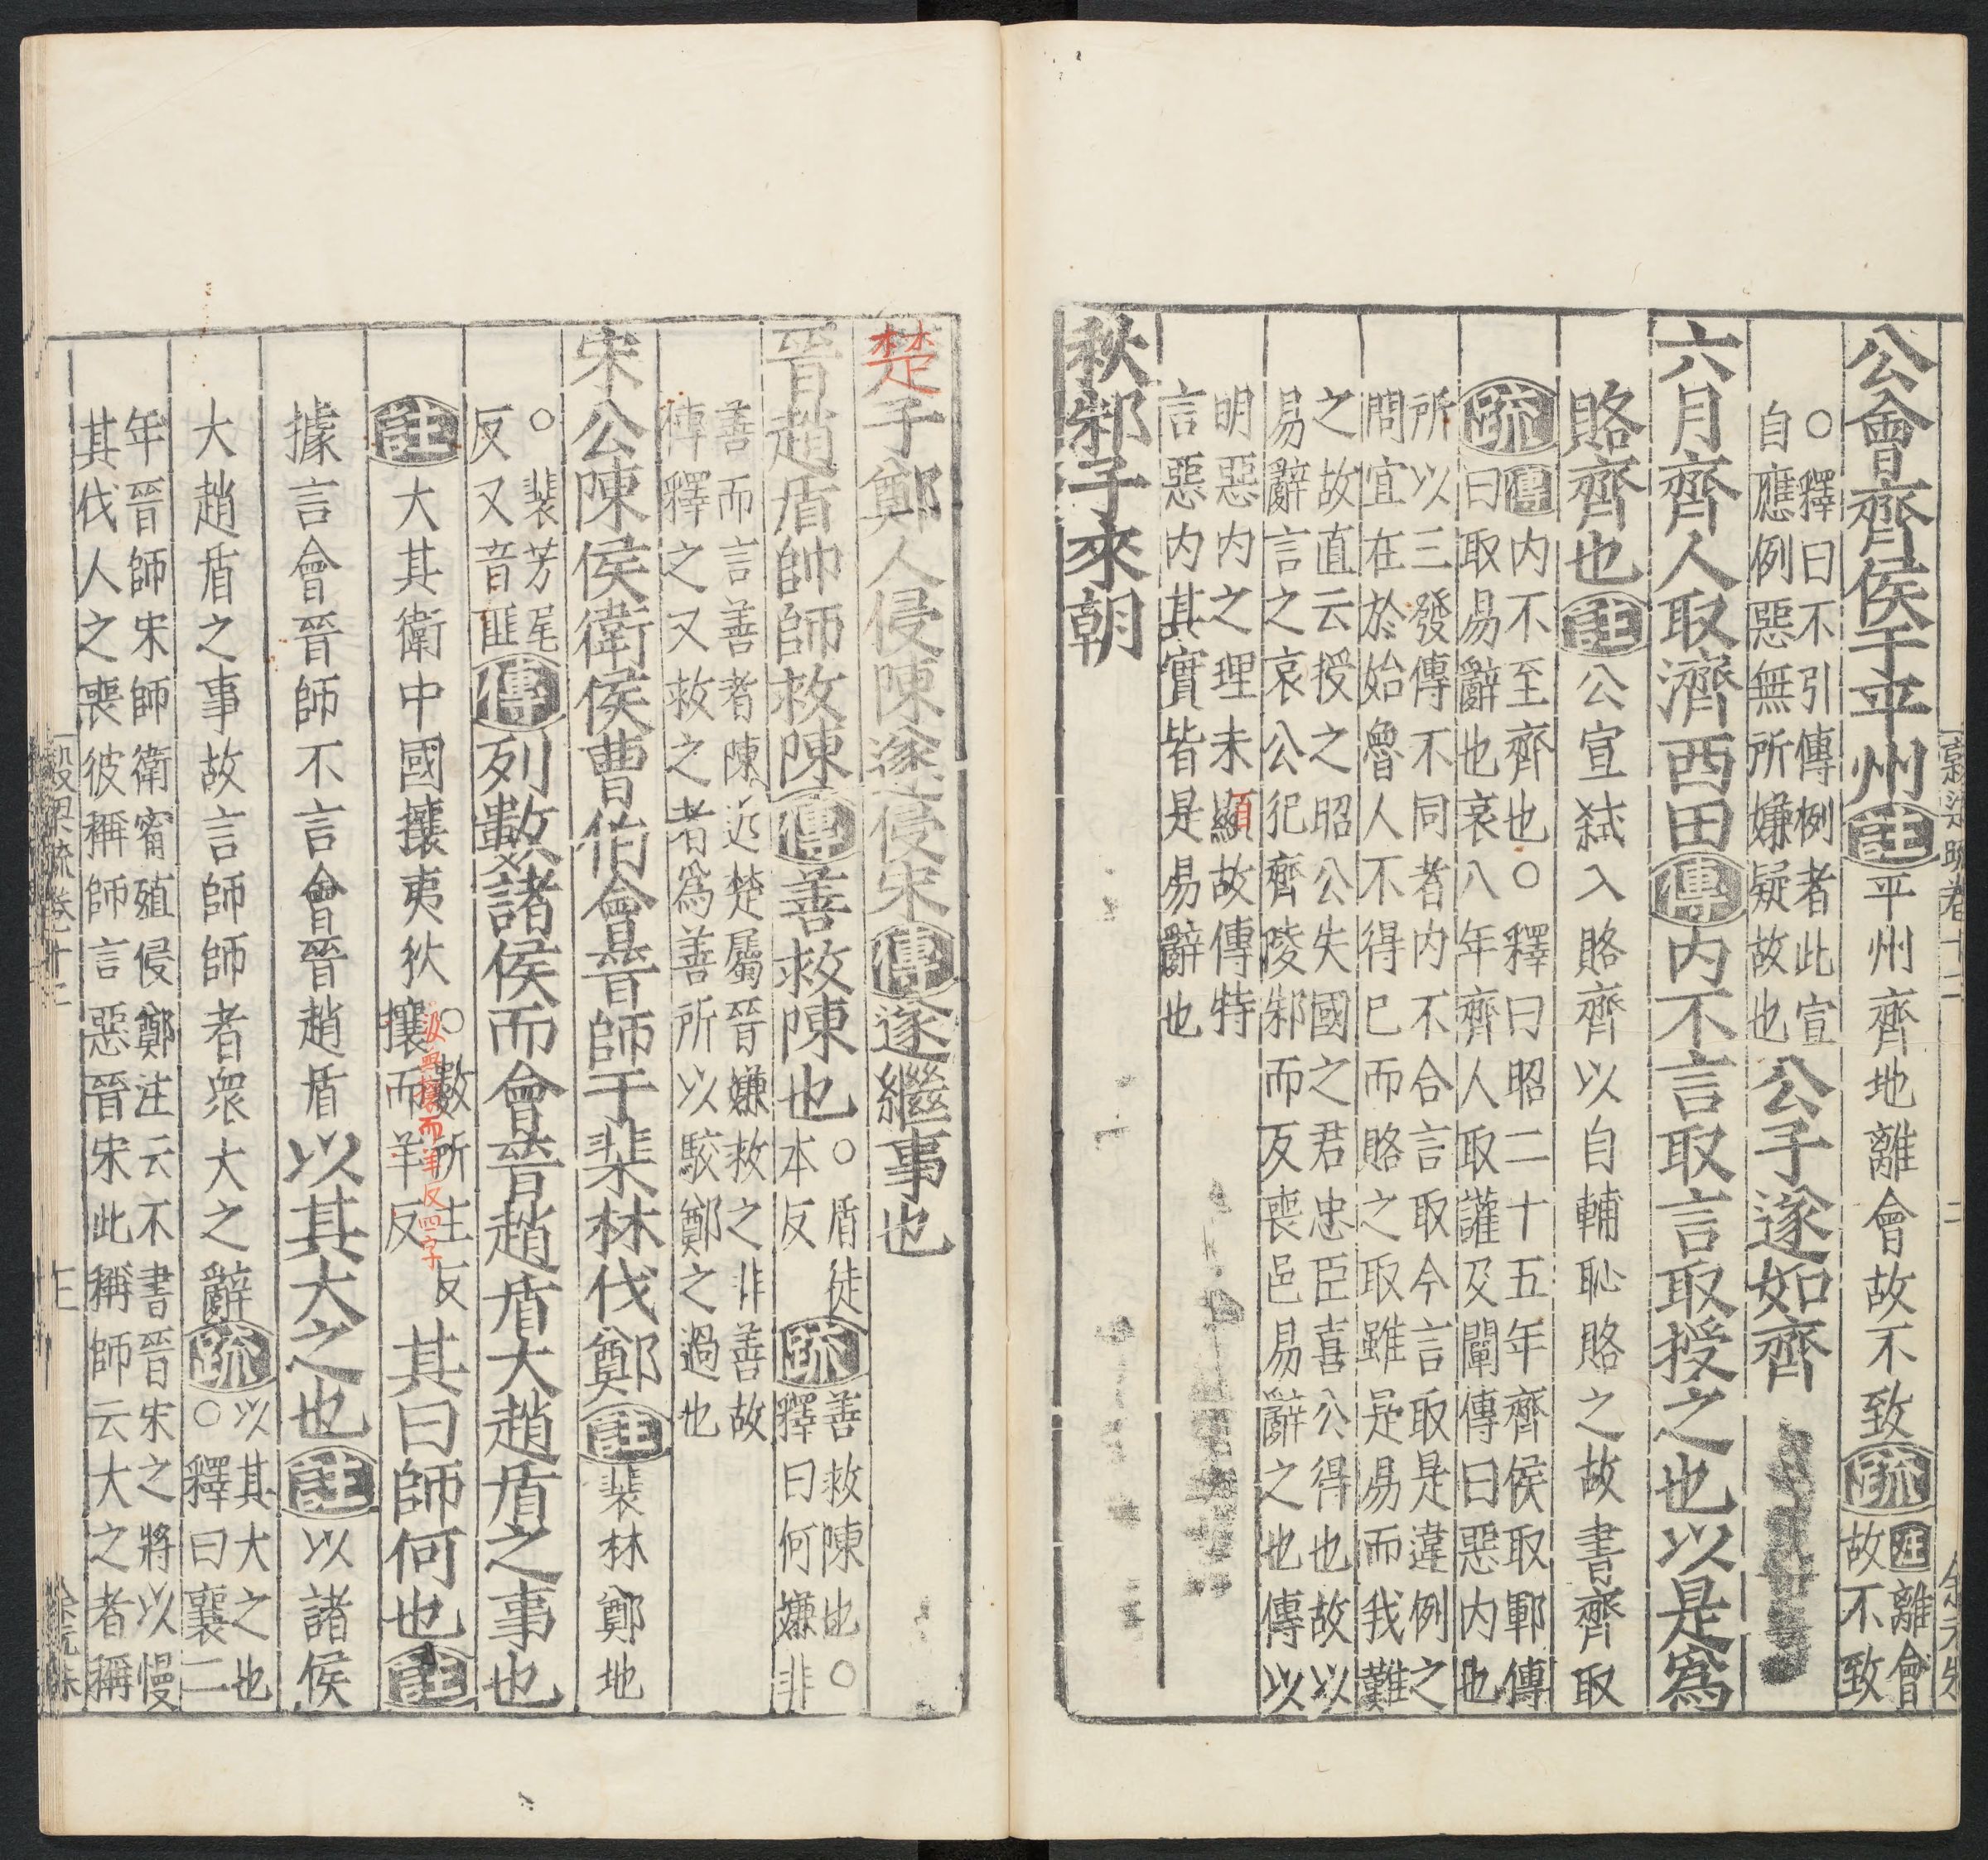 公會齊侯于平州註平州齊地離會故不致疏註離會
故不致
○釋曰不引傳例者此宣
自應例惡無所嫌疑故也公子遂如齊
六月齊人取濟西田傳内不言取言取授之也以是爲
賂齊也註公宣弑入賂齊以自輔恥賂之故書齊取
疏傳内不至齊也○釋曰昭二十五年齊侯取鄆傳
曰取易辭也哀八年齊人取讙及闡傳曰惡内也
所以三發傳不同者内不合言取今言取是違例之
問宜在於始魯人不得已而賂之取雖是易而我難
之故直云授之昭公失國之君忠臣喜公得也故以
易辭言之哀公犯齊陵邾而反喪邑易辭之也傳以
明惡内之理未顯故傳特
言惡内其實皆是易辭也
秋邾子來朝
楚子鄭人侵陳遂侵宋傳遂繼事也
晉趙盾帥師救陳傳善救陳也○盾徒
本反疏善救陳也○
釋曰何嫌非
善而言善者陳近楚屬晉嫌救之非善故
傳釋之又救之者爲善所以駮鄭之過也
宋公陳侯衛侯曹伯會晉師于棐林伐鄭註裴林鄭地
○裴芳尾
反又音匪傳列數諸侯而會晉趙盾大趙盾之事也
註大其衛中國攘夷狄○數所主反
攘而羊反其曰師何也註
攘而羊反四字
據言會晉師不言會晉趙盾以其大之也註以諸侯
大趙盾之事故言師師者衆大之辭疏以其大之也
○釋曰襄二
年晉師宋師衛甯殖侵鄭注云不書晉宋之將以慢
其伐人之喪彼稱師言惡晉宋此稱師云大之者稱